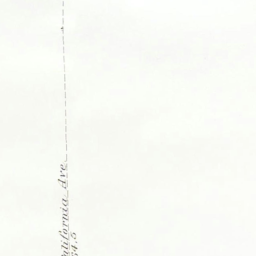 California Ave
34.5